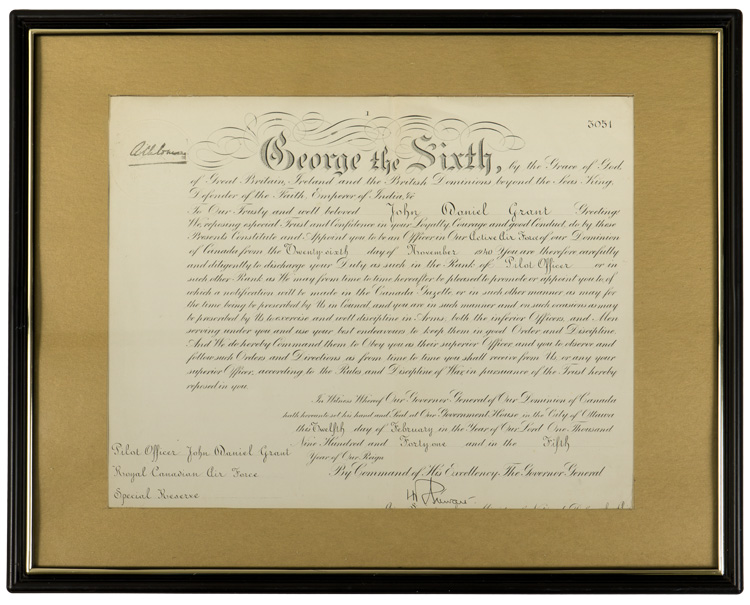 1
3031
George the Sixth, by the Grace of God,
of Great Britain, Ireland and the British Dominions beyond the Seas King,
Defender of the Faith, Emperor of India, &c
To Our Trusty and well beloved John Daniel Grant Greeting:
We, reposing especial Trust and Confidence in your Loyalty, Courage and good Conduct, do by these
Presents Constitute and Appoint you to be an Officer in Our Active Air Force of our Dominion
of Canada from the Twenty-sixth day of November 1940 You are therefore carefully
and diligently to discharge your Duty as such in the Rank of Pilot Officer or in
such other Rank as We may from time to time hereafter be pleased to promote or appoint you to, of
which a notification will be made in the Canada Gazette or in such other manner as may for
the time being be prescribed by Us in Council, and you are in such manner and on such occasions as may
be prescribed by Us to exercise and well discipline in Arms, both the inferior Officers and Men
serving under you and use your best endeavours to keep them in good Order and Discipline,
And We do hereby Command them to Obey you as their superior Officer, and you to observe and
follow such Orders and Directions as from time to time you shall receive from Us, or any your
superior Officer, according to the Rules and Discipline of War, in pursuance of the Trust hereby
reposed in you.
In Witness Whereof Our Governor General of Our Dominion of Canada
hath hereunto set his hand and Seal at Our Government House in the City of Ottawa
this Twelfth day of February in the Year of Our Lord One Thousand
Nine Hundred and Forty-one and in the Fifth
Year of Our Reign
Pilot Officer John Daniel Grant
Royal Canadian Air Force
Special Reserve
By Command of His Excellency The Governor General